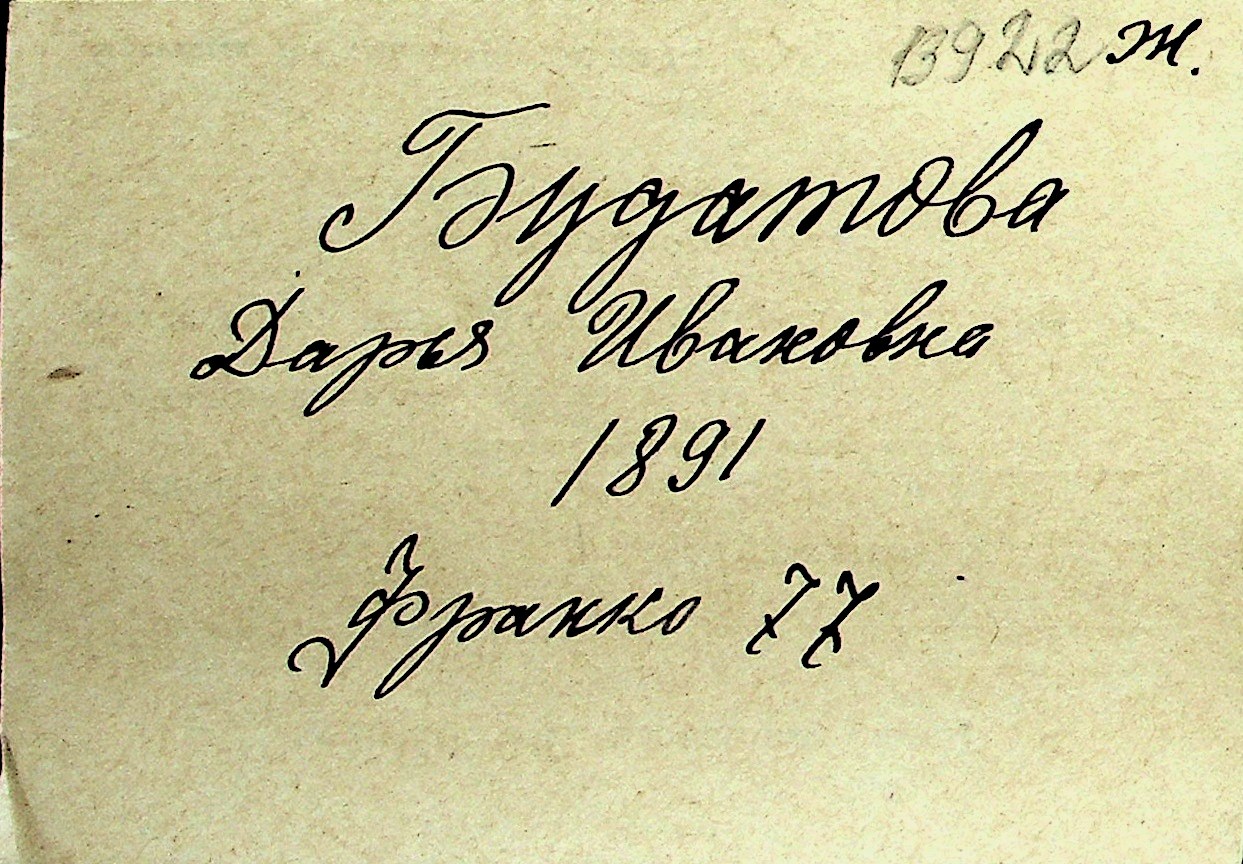 13922 ж.
Будатова
Дарья Ивановна
1891
Франко 77